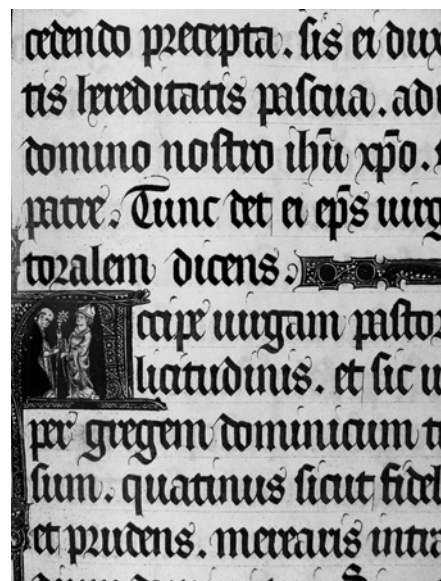 cedendo precepta. sis ei dux
tis hereditatis pascua. adi
domino nostro ihū xp̄o.
patre. Tunc det ei ep̄s uirg
toralem dicens.
Accipe uirgam pastor
licitudinis. et sic u
per gregem dominicum t
sum. quatinus sicut fidel
et prudens. merearis intra